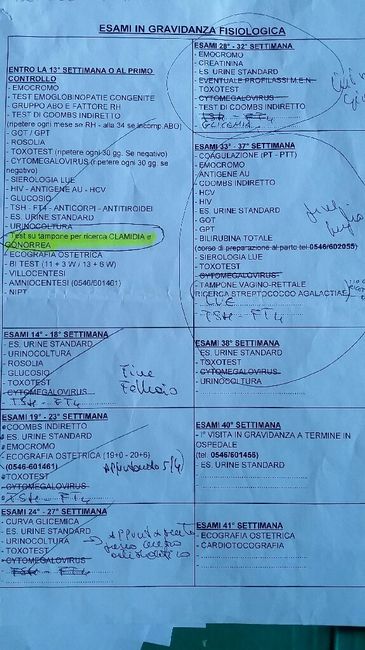 ESAMI IN GRAVIDANZA FISIOLOGICA
ENTRO LA 13° SETTIMANA O AL PRIMO
CONTROLLO
- EMOCROMO
- TEST EMOGLOBINOPATIE CONGENITE
- GRUPPO ABO E FATTORE RH
- TEST DI COOMBS INDIRETTO
(ripetere ogni mese se RH - alla 34 se incomp.ABO)
- GOT / GPT
- ROSOLIA
- TOXOTEST (ripetere ogni 30 gg. Se negativo)
- CYTOMEGALOVIRUS (ripetere ogni 30 gg. se
negativo)
- SIEROLOGIA LUE
- HIV - ANTIGENE AU - HCV
- GLUCOSIO
- TSH - FT4 - ANTICORPI - ANTITIROIDEI
- ES. URINE STANDARD
- URINOCOLTURA
- Test su tampone per ricerca CLAMIDIA e
GONORREA
- ECOGRAFIA OSTETRICA
- BI TEST (11 + 3 W / 13 + 6 W)
- VILLOCENTESI
- AMNIOCENTESI (0546/601461)
- NIPT
ESAMI 14° - 18° SETTIMANA
- ES. URINE STANDARD
- URINOCOLTURA
- ROSOLIA
- GLUCOSIO
- TOXOTEST
- CYTOMEGALOVIRUS
- TSH - FT4
Fine
Febbraio
ESAMI 19° - 23° SETTIMANA
COOMBS INDIRETTO
ES. URINE STANDARD
EMOCROMO
- ECOGRAFIA OSTETRICA (19+0 - 20+6)
(0546-601461)
TOXOTEST
- CYTOMEGALOVIRUS
- TSH - FT4
5/4
ESAMI 24° - 27° SETTIMANA
- CURVA GLICEMICA
- ES. URINE STANDARD
- URINOCOLTURA
- TOXOTEST
- CYTOMEGALOVIRUS
- TSH - FT4
ESAMI 28° - 32° SETTIMANA
- EMOCROMO
- CREATININA
- ES. URINE STANDARD
- EVENTUALE PROFILASSI I.M.E.N.
- TOXOTEST
- CYTOMEGALOVIRUS
- TEST DI COOMBS INDIRETTO
- TSH - FT4
GLICEMIA
ESAMI 33° - 37° SETTIMANA
- COAGULAZIONE (PT - PTT)
- EMOCROMO
- ANTIGENE AU
- COOMBS INDIRETTO
- HCV
- HIV
- ES. URINE STANDARD
- GOT
- GPT
- BILIRUBINA TOTALE
(corso di preparazione al parto tel.0546/602055)
- SIEROLOGIA LUE
- TOXOTEST
- CYTOMEGALOVIRUS
- TAMPONE VAGINO-RETTALE
(RICERCA STREPTOCOCCO AGALACTIAE)
- LUE
- TSH - FT4
ESAMI 38° SETTIMANA
- ES. URINE STANDARD
- TOXOTEST
- CYTOMEGALOVIRUS
- URINOCOLTURA
ESAMI 40° SETTIMANA
- I° VISITA IN GRAVIDANZA A TERMINE IN
OSPEDALE
(tel. 0546/601455)
- ES. URINE STANDARD
ESAMI 41° SETTIMANA
- ECOGRAFIA OSTETRICA
- CARDIOTOCOGRAFIA